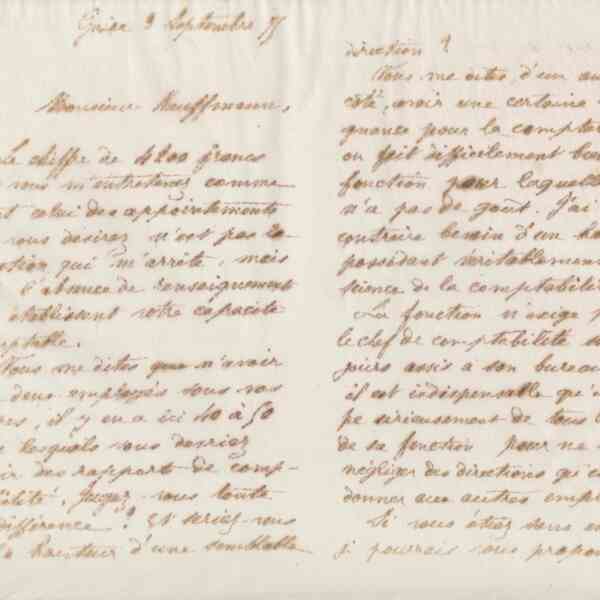 Guise 9 Septembre 77
Monsieur Kauffmann,
Le chiffre de 4200 francs
vous m'entretenez comme
t celui des appointements
vous désirez n'est pas la
stion qui m'arrête, mais
l'absence de renseignement
établissant votre capacité
mptable.
Vous me dites que n'avoir
deux employés sous vos
res, il y en a ici 40 à 50
lesquels vous devriez
ir des rapport de comp-
ilité. Jugez vous toute
différence ? Et seriez-vous
hauteur d'une semblable
direction ?
Vous me dites d'un au
côté, avoir une certaine
gnance pour la comptab
on fait difficilement bien
fonction pour laquelle
n'a pas de goût. J'ai
contraire besoin d'un ho
possédant véritablement
science de la comptabilit
La fonction n'exige p
le chef de comptabilité s
jours assis à son bureau
il est indispensable qu'
pe sérieusement de tous l
de sa fonction pour ne
négliger des directions qu'
donner aux autres empl
Si vous étiez sans e
je pourrais vous propo